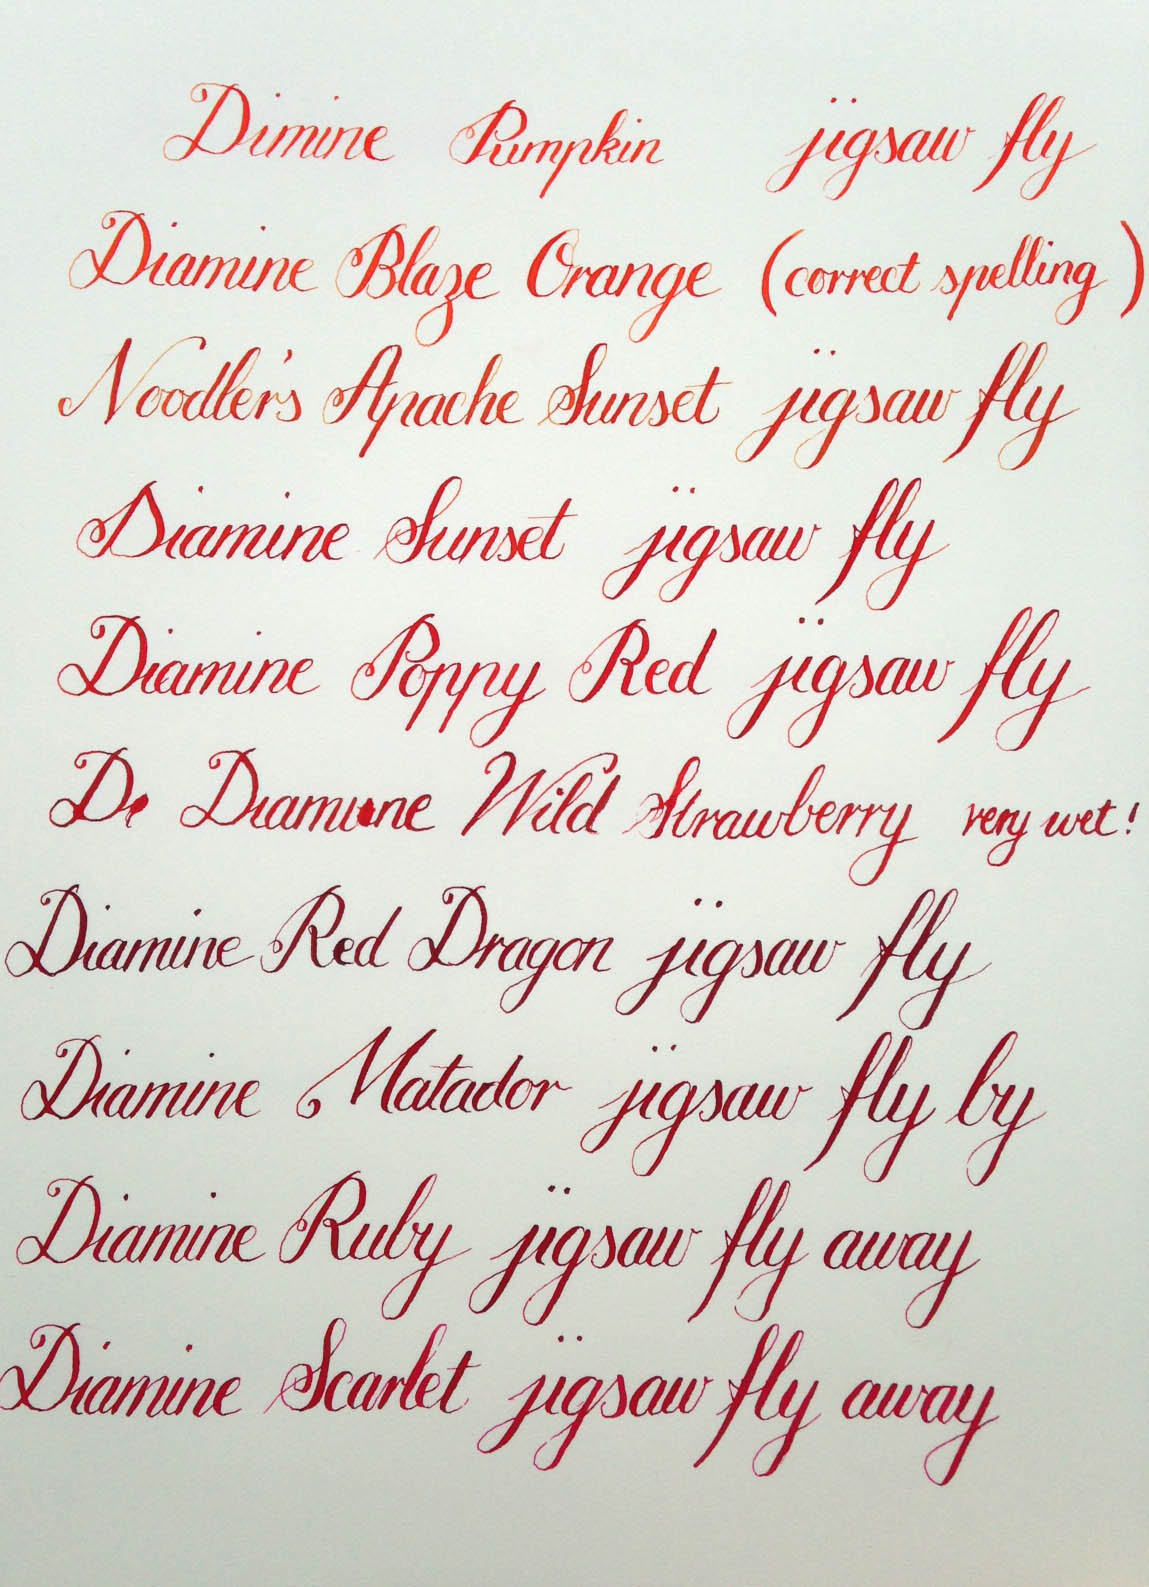 Dimine Pumpkin jigsaw fly
Diamine Blaze Orange (correct spelling)
Noodler's Apache Sunset jigsaw fly
Diamine Sunset jigsaw fly
Diamine Poppy Red jigsaw fly
De Diamine Wild Strawberry very wet!
Diamine Red Dragon jigsaw fly
Diamine Matador jigsaw fly by
Diamine Ruby jigsaw fly away
Diamine Scarlet jigsaw fly away